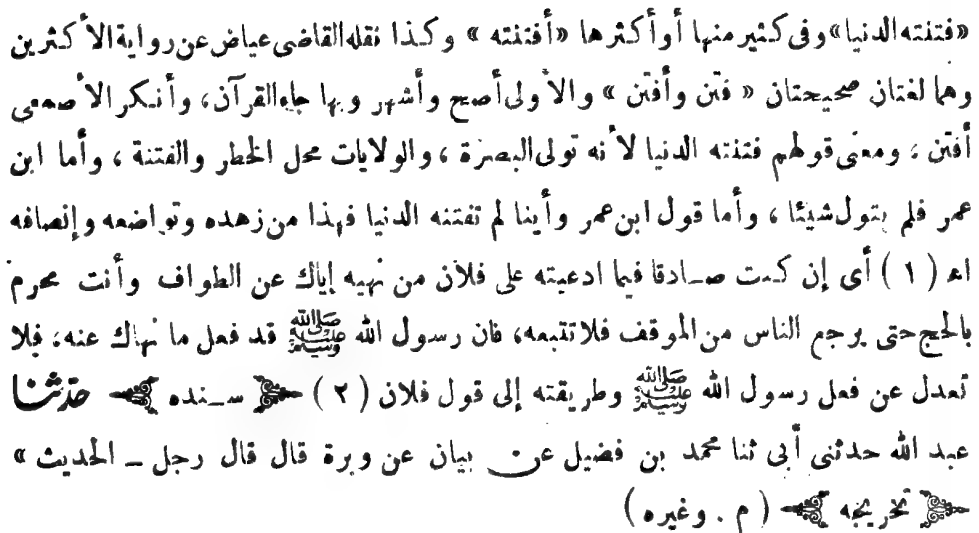 «فتنته الدنيا» وفى كثير منها أو أكثرها «أفتنته» وكذا نقله القاضى عياض عن رواية الأكثرين
وهما لغتان صحيحتان « فتن وأفتن » والأولى أصح وأشهر وبها جاء القرآن، وأنكر الأصمعى
أفتن ؛ ومعنى قولهم فتنته الدنيا لأنه تولى البصرة ، والولايات محل الخطر والفتنة ، وأما ابن
عمر فلم يتول شيئا ، وأما قول ابن عمر وأينا لم تفتنه الدنيا فهذا من زهده وتواضعه وإنصافه
اه ( ١ ) أى إن كنت صادقا فيما ادعيته على فلان من نهيه إياك عن الطواف وأنت محرم
بالحج حتى يرجع الناس من الموقف فلا تتبعه، فان رسول الله ﷺ قد فعل ما نهاك عنه، فلا
تعدل عن فعل رسول الله ﷺ وطريقته إلى قول فلان ( ٢ ) ﴿ سنده ﴾ حدثنا
عبد الله حدثنى أبى ثنا محمد بن فضيل عن بيان عن وبرة قال قال رجل ــ الحديث »
﴿ تخريجه ﴾ ( م . وغيره )